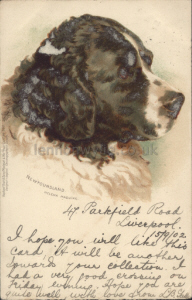 NEWFOUNDLAND
47 Parkfield Road
Liverpool.
15/9/02
I hope you will like this
card, it will be another
towards your collection. I
had a very good crossing on
Friday evening. Hope you are
quite well with love from